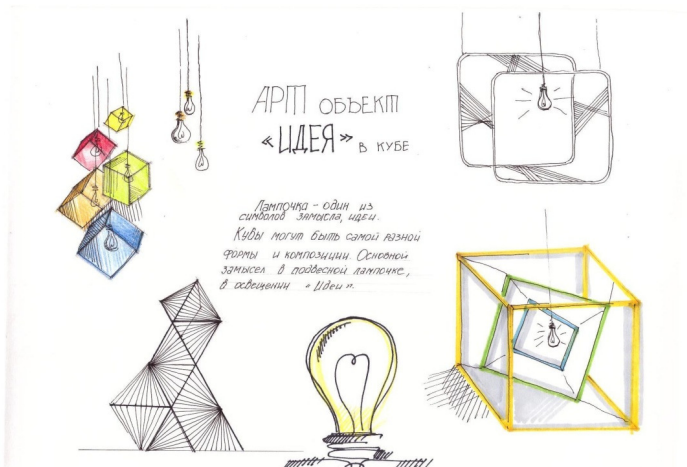 АРТ ОБЪЕКТ
«ИДЕЯ» В КУБЕ
Лампочка - один из
символов замысла, идеи.
Кубы могут быть самой разной
формы и композиции. Основной
замысел в подвесной лампочке,
в освещении «Идеи».